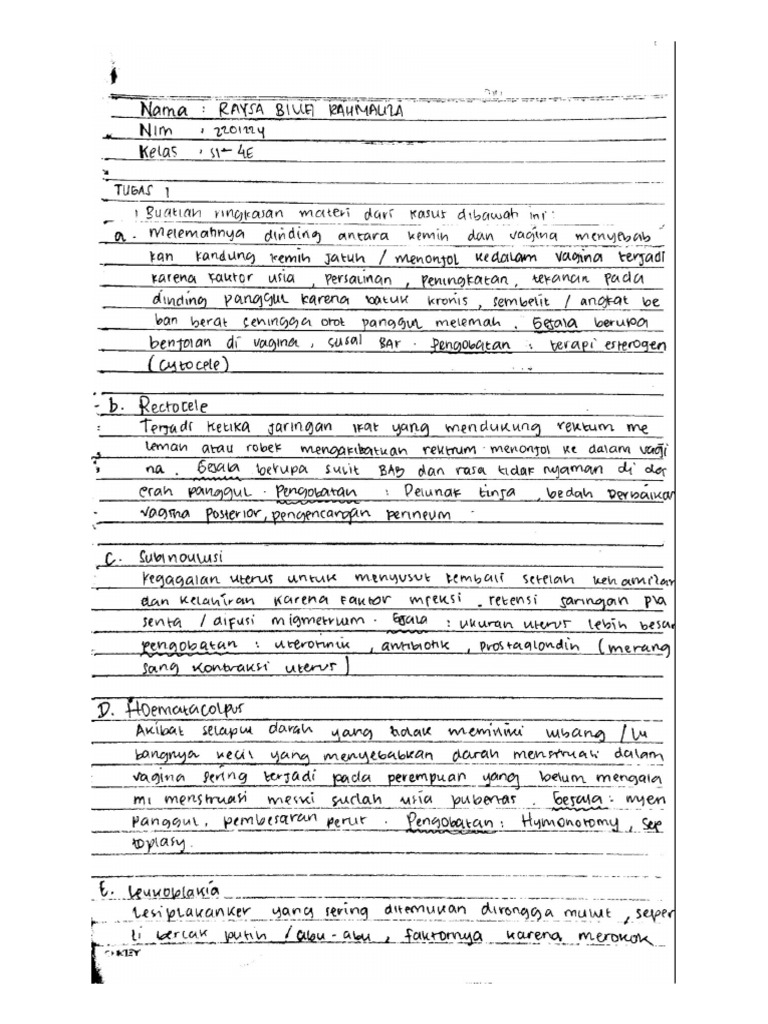 Nama : RAYSA BILLA RAHMALIZA
Nim : 2201224
Kelas : S1-4E
TUGAS 1
1 Buatlah ringkasan materi dari kasus dibawah ini :
a. Melemahnya dinding antara kemih dan vagina menyebab
kan kandung kemih jatuh / menonjol kedalam vagina terjadi
karena faktor usia, persalinan, peningkatan, tekanan pada
dinding panggul karena batuk kronis, sembelit / angkat be
ban berat sehingga otot panggul melemah. Gejala berupa
benjolan di vagina, susah BAK. Pengobatan : terapi esterogen
(Cytocele)
b. Rectocele
Terjadi ketika jaringan ikat yang mendukung rektum me
lemah atau robek mengakibatkan rektrum menonjol ke dalam vagi
na. Gejala berupa sulit BAB dan rasa tidak nyaman di da
erah panggul. Pengobatan : Pelunak tinja, bedah perbaikan
vagina posterior, pengencangan perineum
C. Subinvulusi
Kegagalan uterus untuk menyusut kembali setelah kehamilan
dan kelahiran karena faktor infeksi, retensi jaringan pla
senta / difusi migmetrium. Gejala : ukuran uterus lebih besar
pengobatan : uterotinik, antibiotik, prostaglondin (merang
sang kontraksi uterus)
D. Hoematacolpus
Akibat selaput darah yang tidak memiliki lubang / lu
bangnya kecil yang menyebabkan darah menstruasi dalam
vagina sering terjadi pada perempuan yang belum mengala
mi menstruasi meski sudah usia pubertas. Gejala : nyeri
panggul, pembesaran perut. Pengobatan : Hymonotomy, sep
toplasy.
E. Leukoplakia
Lesiplakanker yang sering ditemukan dirongga mulut, seper
ti bercak putih / abu-abu, faktornya karena merokok